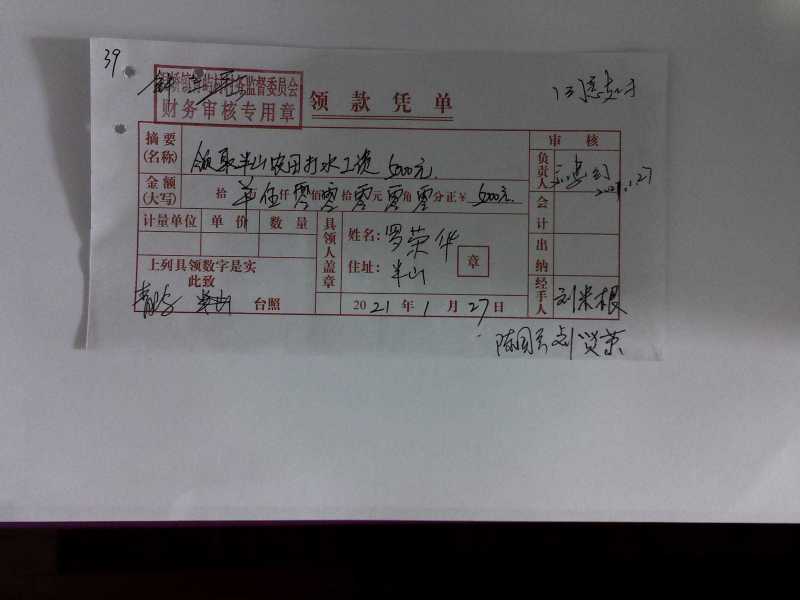 39
财务审核专用章
领款凭单
摘要
(名称)
领取半山农田打水工资 5000元.
审核
金额
(大写)
拾 万 伍 仟 零 佰 零 拾 零 元 零 角 零 分正¥ 5000元.
负责人
2021.1.27
计量单位 单价 数量
具领人盖章
姓名: 罗荣华
住址: 半山
章
会计
出纳
上列具领数字是实
此致
台照
2021 年 1 月 27 日
经手人
刘米根